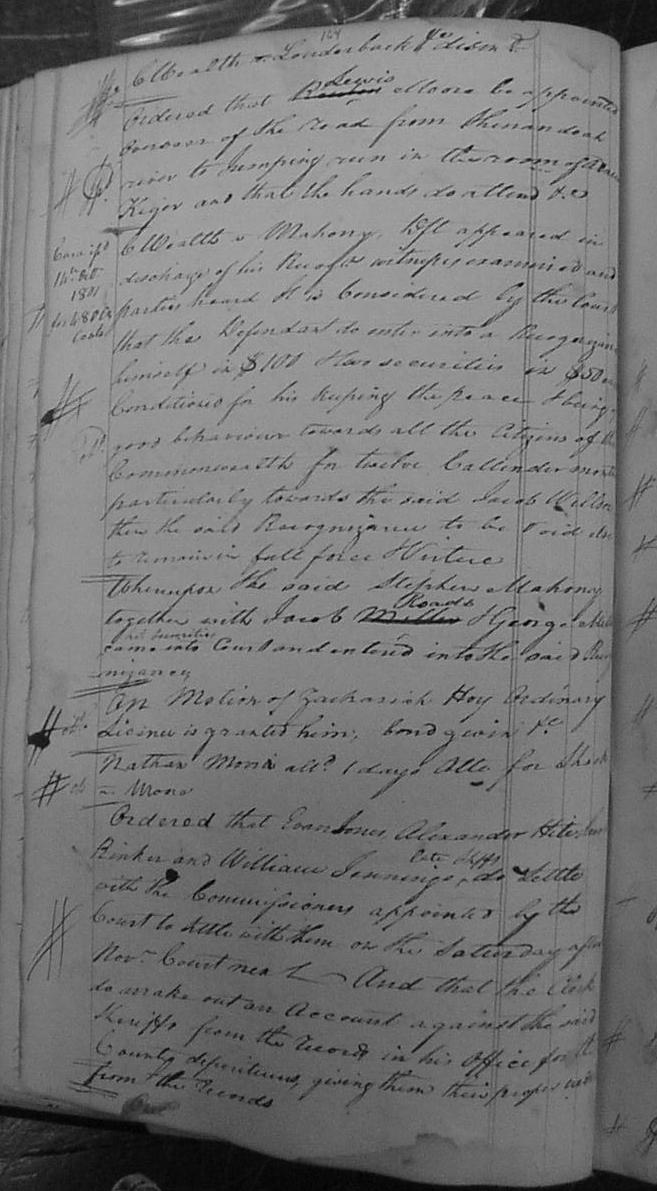 164
C Wealth v Louderback
Ordered that Lewis Moore be appointed
overseer of the road from Shenandoah
river to Jumping run in the room of
Kiger and that the hands do attend &c
C Wealth v Mahony, Deft appeared in
discharge of his Recogce witnesses examined and
parties heard It is Considered by the Court
that the Defendant do enter into a Recognizan
himself in $100 & two securities in $50
Conditioned for his keeping the peace & being
good behaviour towards all the Citizens of
Commonwealth for twelve Callender mon
particularly towards the said Jacob
then the said Recognizance to be void
to remain in full force & Virtue
Whereupon the said Stephen Mahony
together with Jacob Miller Roads & George
his securities
came into Court and entered into the said Rec
nizance
On Motion of Zachariah Hoy Ordinary
Licence is granted him, bond given &c
Nathan alld 1 days Atte for
v
Ordered that Evan Jones, Alexander Hite,
Rinker and William Jennings, late Shffs do settle
with the Commissioners appointed by the
Court to settle with them on the Saturday after
Novr Court next And that the Clerk
do make out an Account against the said
Sheriffs from the record in his Office for
County depositums, giving them their proper
from the records
Copy issd
14th Oct
1801
for
Costs